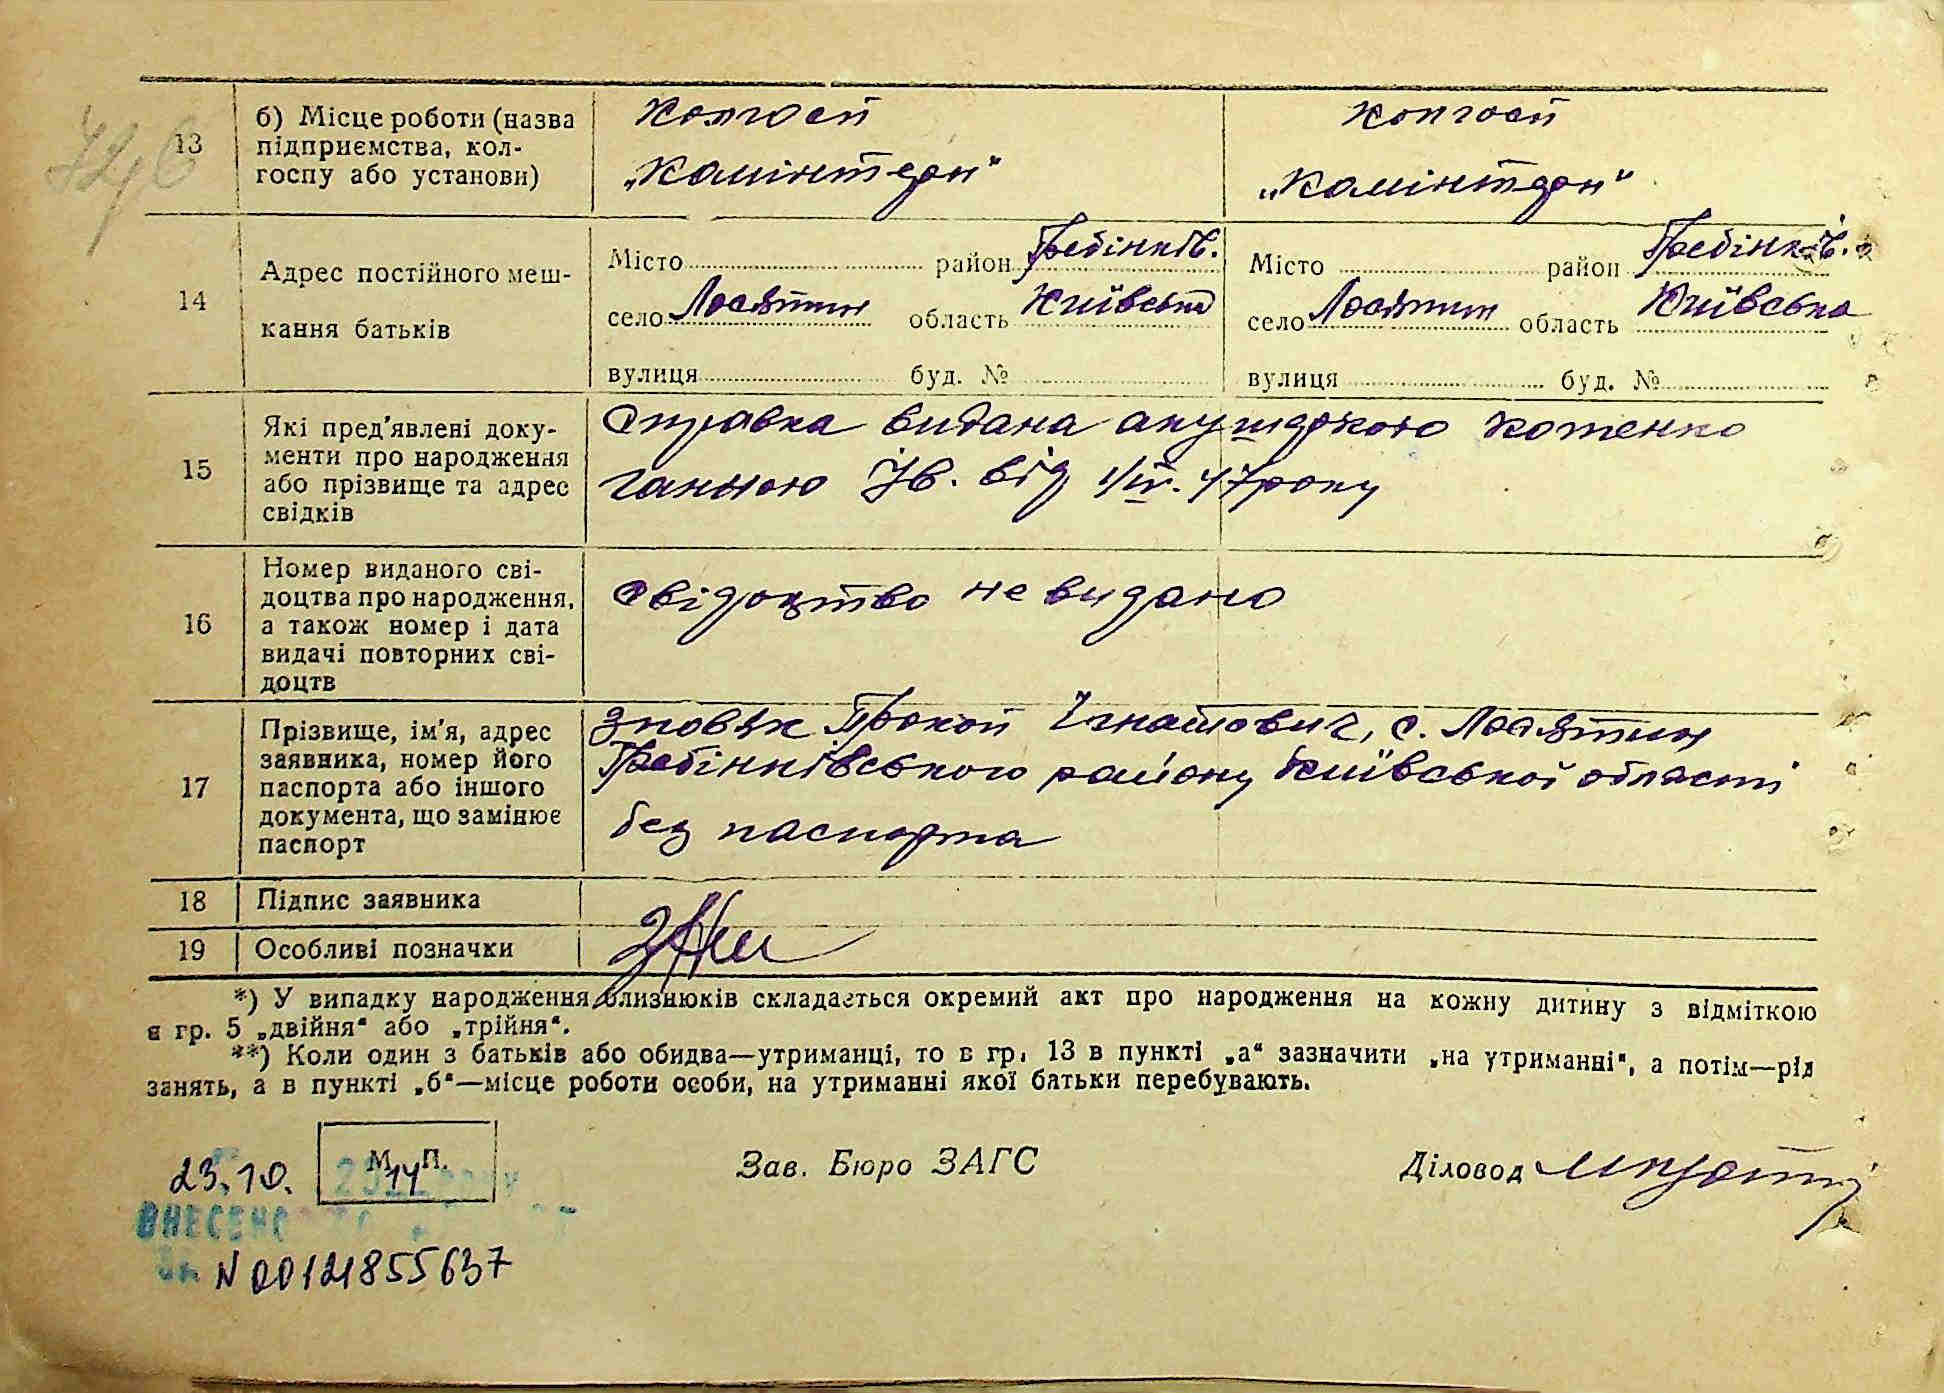 13
б) Місце роботи (назва
підприємства, кол-
госпу або установи)
Колгосп
„Комінтерн“
Колгосп
„Комінтерн“
14
Адрес постійного меш-
кання батьків
Місто район Гребінків.
село Лосятин область Київська
вулиця буд. №
Місто район Гребінків.
село Лосятин область Київська
вулиця буд. №
15
Які пред'явлені доку-
менти про народження
або прізвище та адрес
свідків
Справка видана акушеркою Котенко
Ганною Ів. від 1/IV. 47 року
16
Номер виданого сві-
доцтва про народження,
а також номер і дата
видачі повторних сві-
доцтв
Свідоцтво не видано
17
Прізвище, ім'я, адрес
заявника, номер його
паспорта або іншого
документа, що замінює
паспорт
Зповяк Прокоп Ігнатович, с. Лосятин
Гребінківського району Київської області
без паспорта
18
Підпис заявника
19
Особливі позначки
*) У випадку народження близнюків складається окремий акт про народження на кожну дитину з відміткою
в гр. 5 „двійня“ або „трійня“.
**) Коли один з батьків або обидва—утриманці, то в гр. 13 в пункті „а“ зазначити „на утриманні“, а потім—рід
занять, а в пункті „б“—місце роботи особи, на утриманні якої батьки перебувають.
23.10. М. П. 14
Зав. Бюро ЗАГС
Діловод
ВНЕСЕНО
N 00121855637